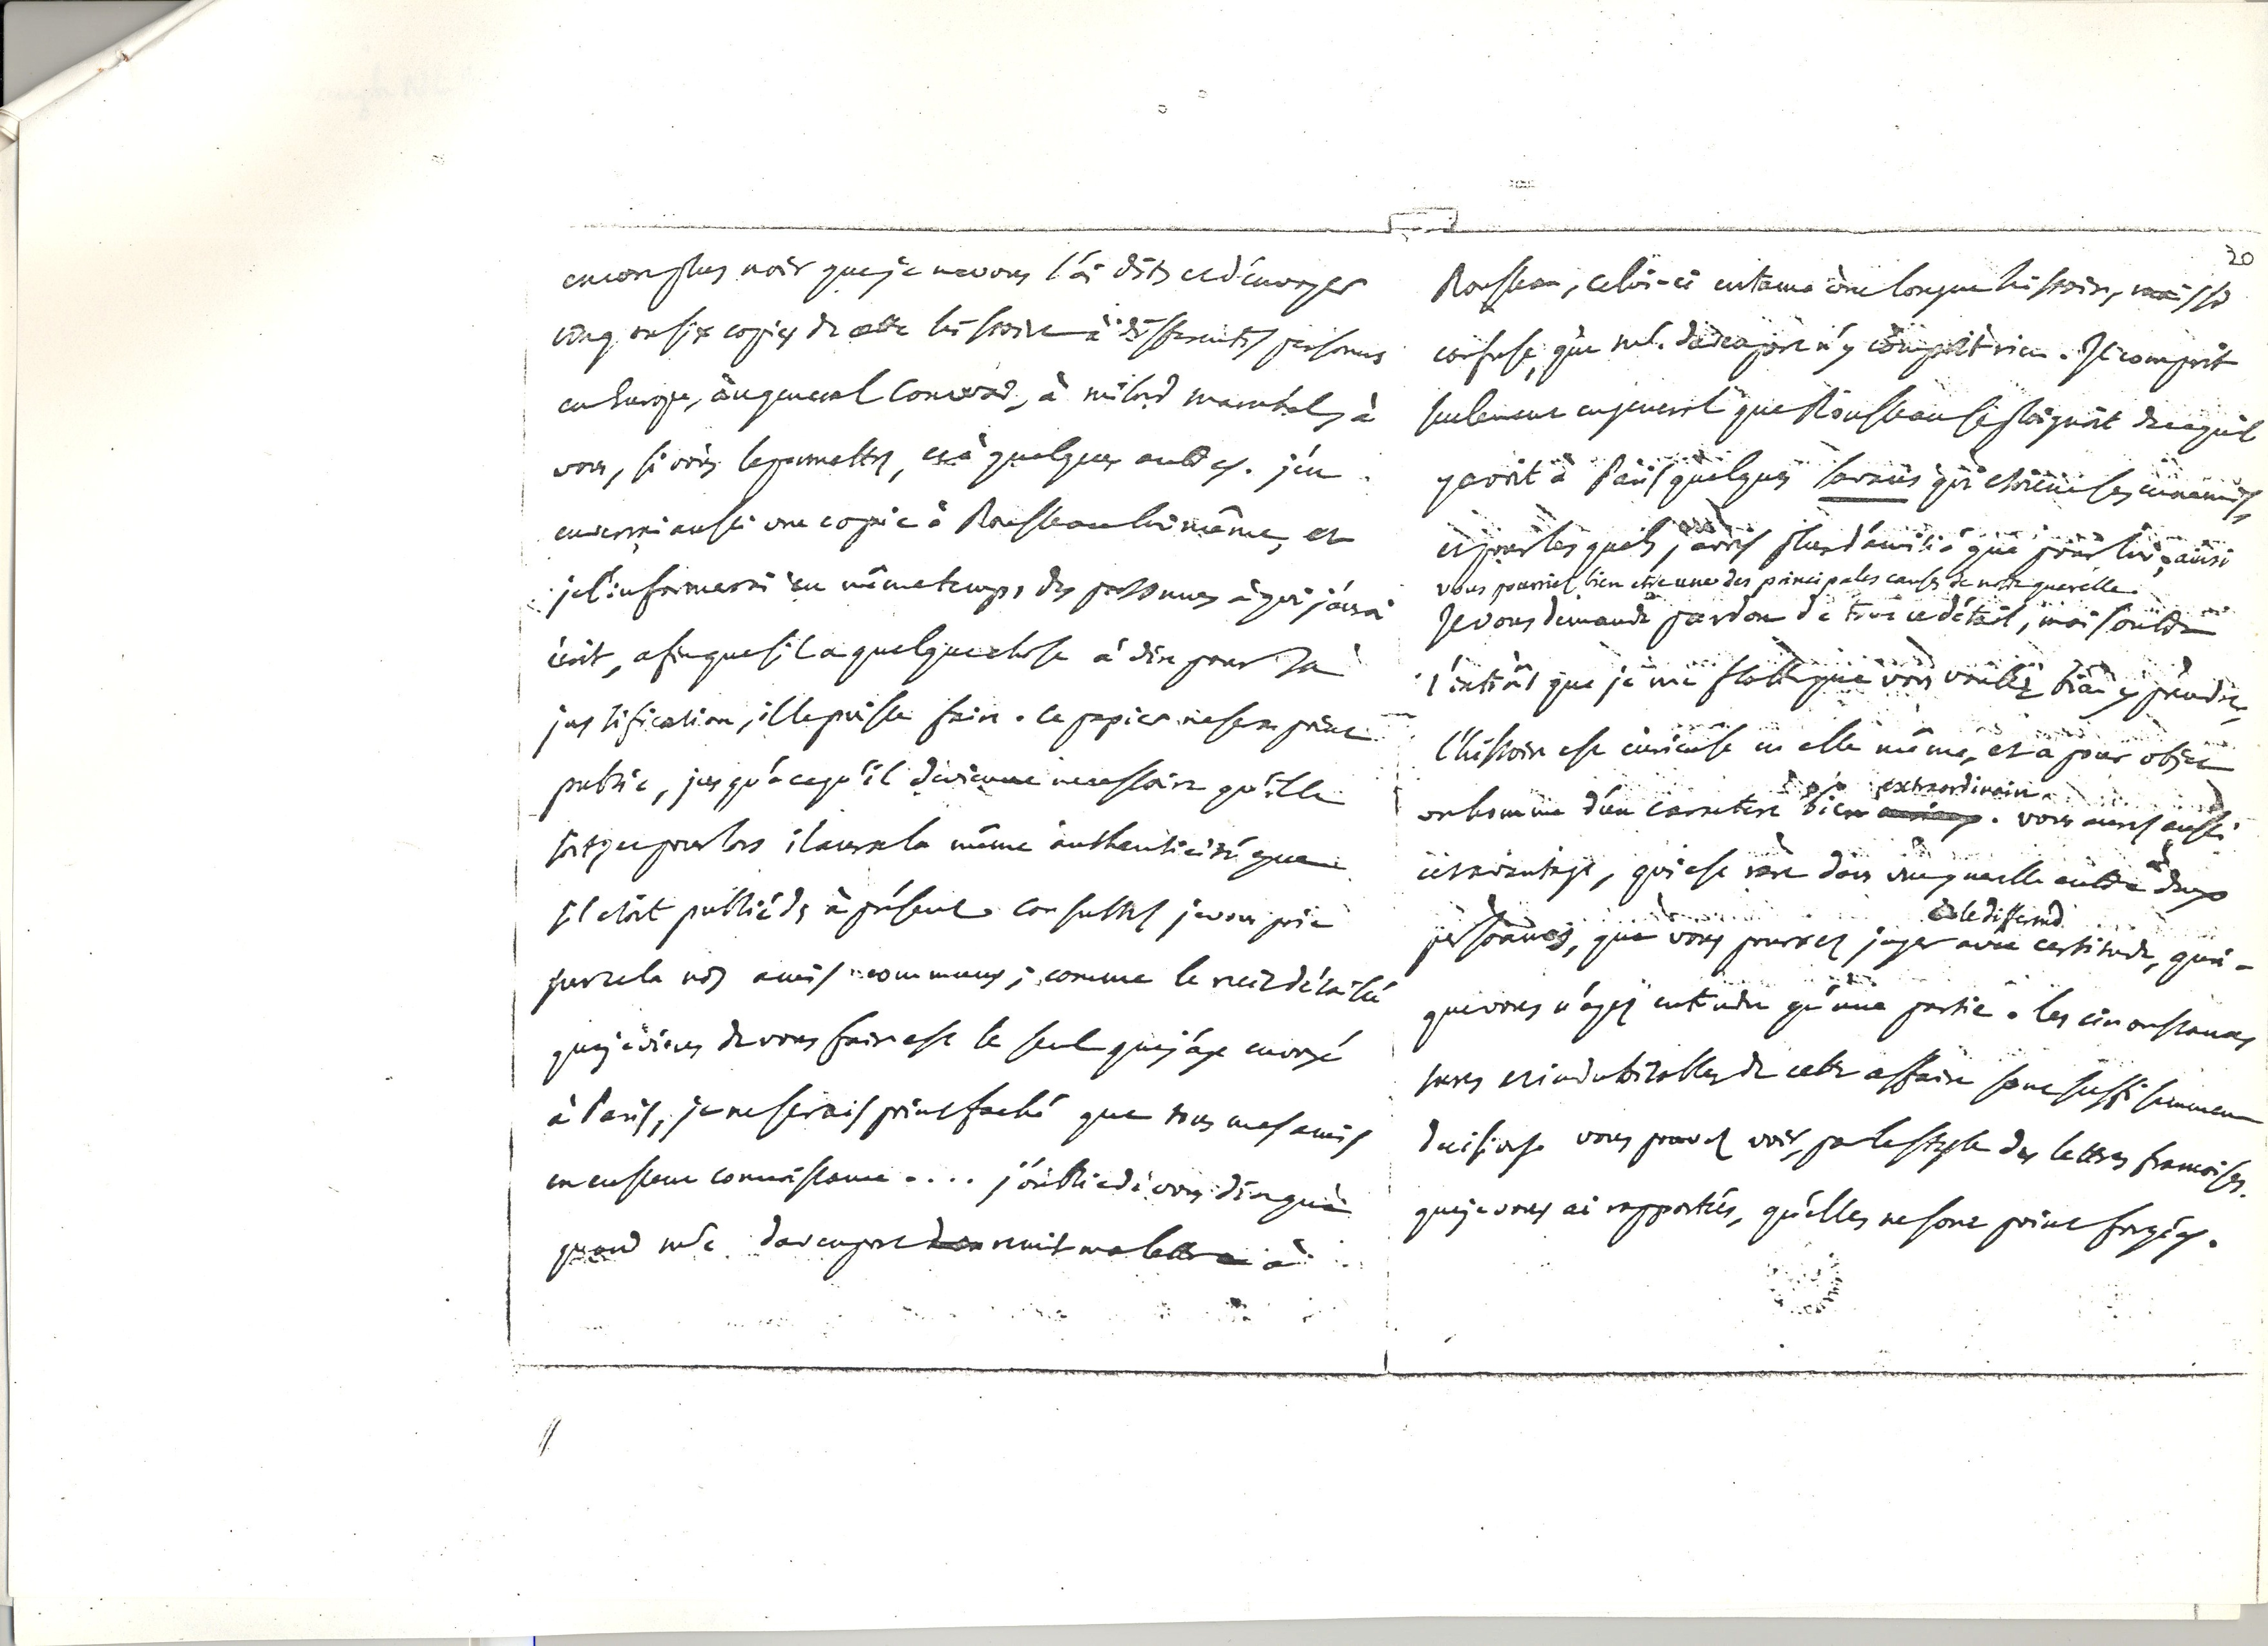 encore plus noir que je ne vous l'ai dit, et d'envoyer
cinq ou six copies de cette histoire à differentes personnes
en Europe, au general Conwad, à milord marechal, à
vous, si vous le permettes, et à quelques autres. j'en
enverrai aussi une copie à Rousseau lui même, et
je l'informerai en même temps des personnes à qui j'aurai
écrit, afin que s'il a quelque chose à dire pour sa
justification, il le puisse faire. ce papier ne sera point
public, jusqu'à ce qu'il devienne necessaire qu'il le
soit, que pour lors il aura la même authenticité que
s'il etoit publié dès à présent. consultes je vous prie
sur cela nos amis communs; comme le recit détaillé
que je viens de vous faire est le seul que j'aye envoyé
à Paris, je ne serois point faché que tous mes amis
en eussent connoissance .... j'oublie de vous dire que
quand mr. davenport remit ma lettre à
20
Rousseau, celui-ci entama une longue histoire, mais si
confuse, que mr. davenport n'y comprit rien. Il comprit
seulement en general que Rousseau se plaignoit de ce qu'il
y avoit à Paris quelques savans qui etoient ses ennemis,
et pour les quels j'avois plus d'amitié que pour lui; ainsi
vous pourriez bien etre une des principales causes de notre querelle.
Je vous demande pardon de tout ce détail, mais outre
l'intérêt que je me flatte que vous voulez bien y prendre,
l'histoire est curieuse en elle même, et a pour objet
extraordinaire.
un homme d'un caractere bien . vous aurez aussi
cet avantage, qui est rare dans une querelle entre deux
le differend
personnes, que vous pourrez juger avec certitude, quoi-
que vous n'ayez entendu qu'une partie. les circonstances
sures et indubitables de cette affaire sont suffisamment
decisives vous pouvez voir, par le style des lettres francoises.
que je vous ai rapportées, qu'elles ne sont point forgées.